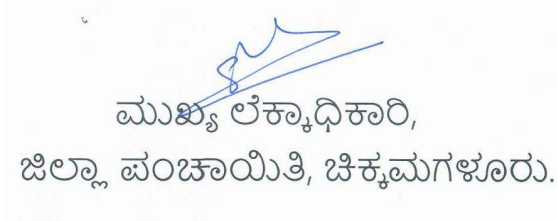 ಮುಖ್ಯ ಲೆಕ್ಕಾಧಿಕಾರಿ,
ಜಿಲ್ಲಾ ಪಂಚಾಯಿತಿ, ಚಿಕ್ಕಮಗಳೂರು.